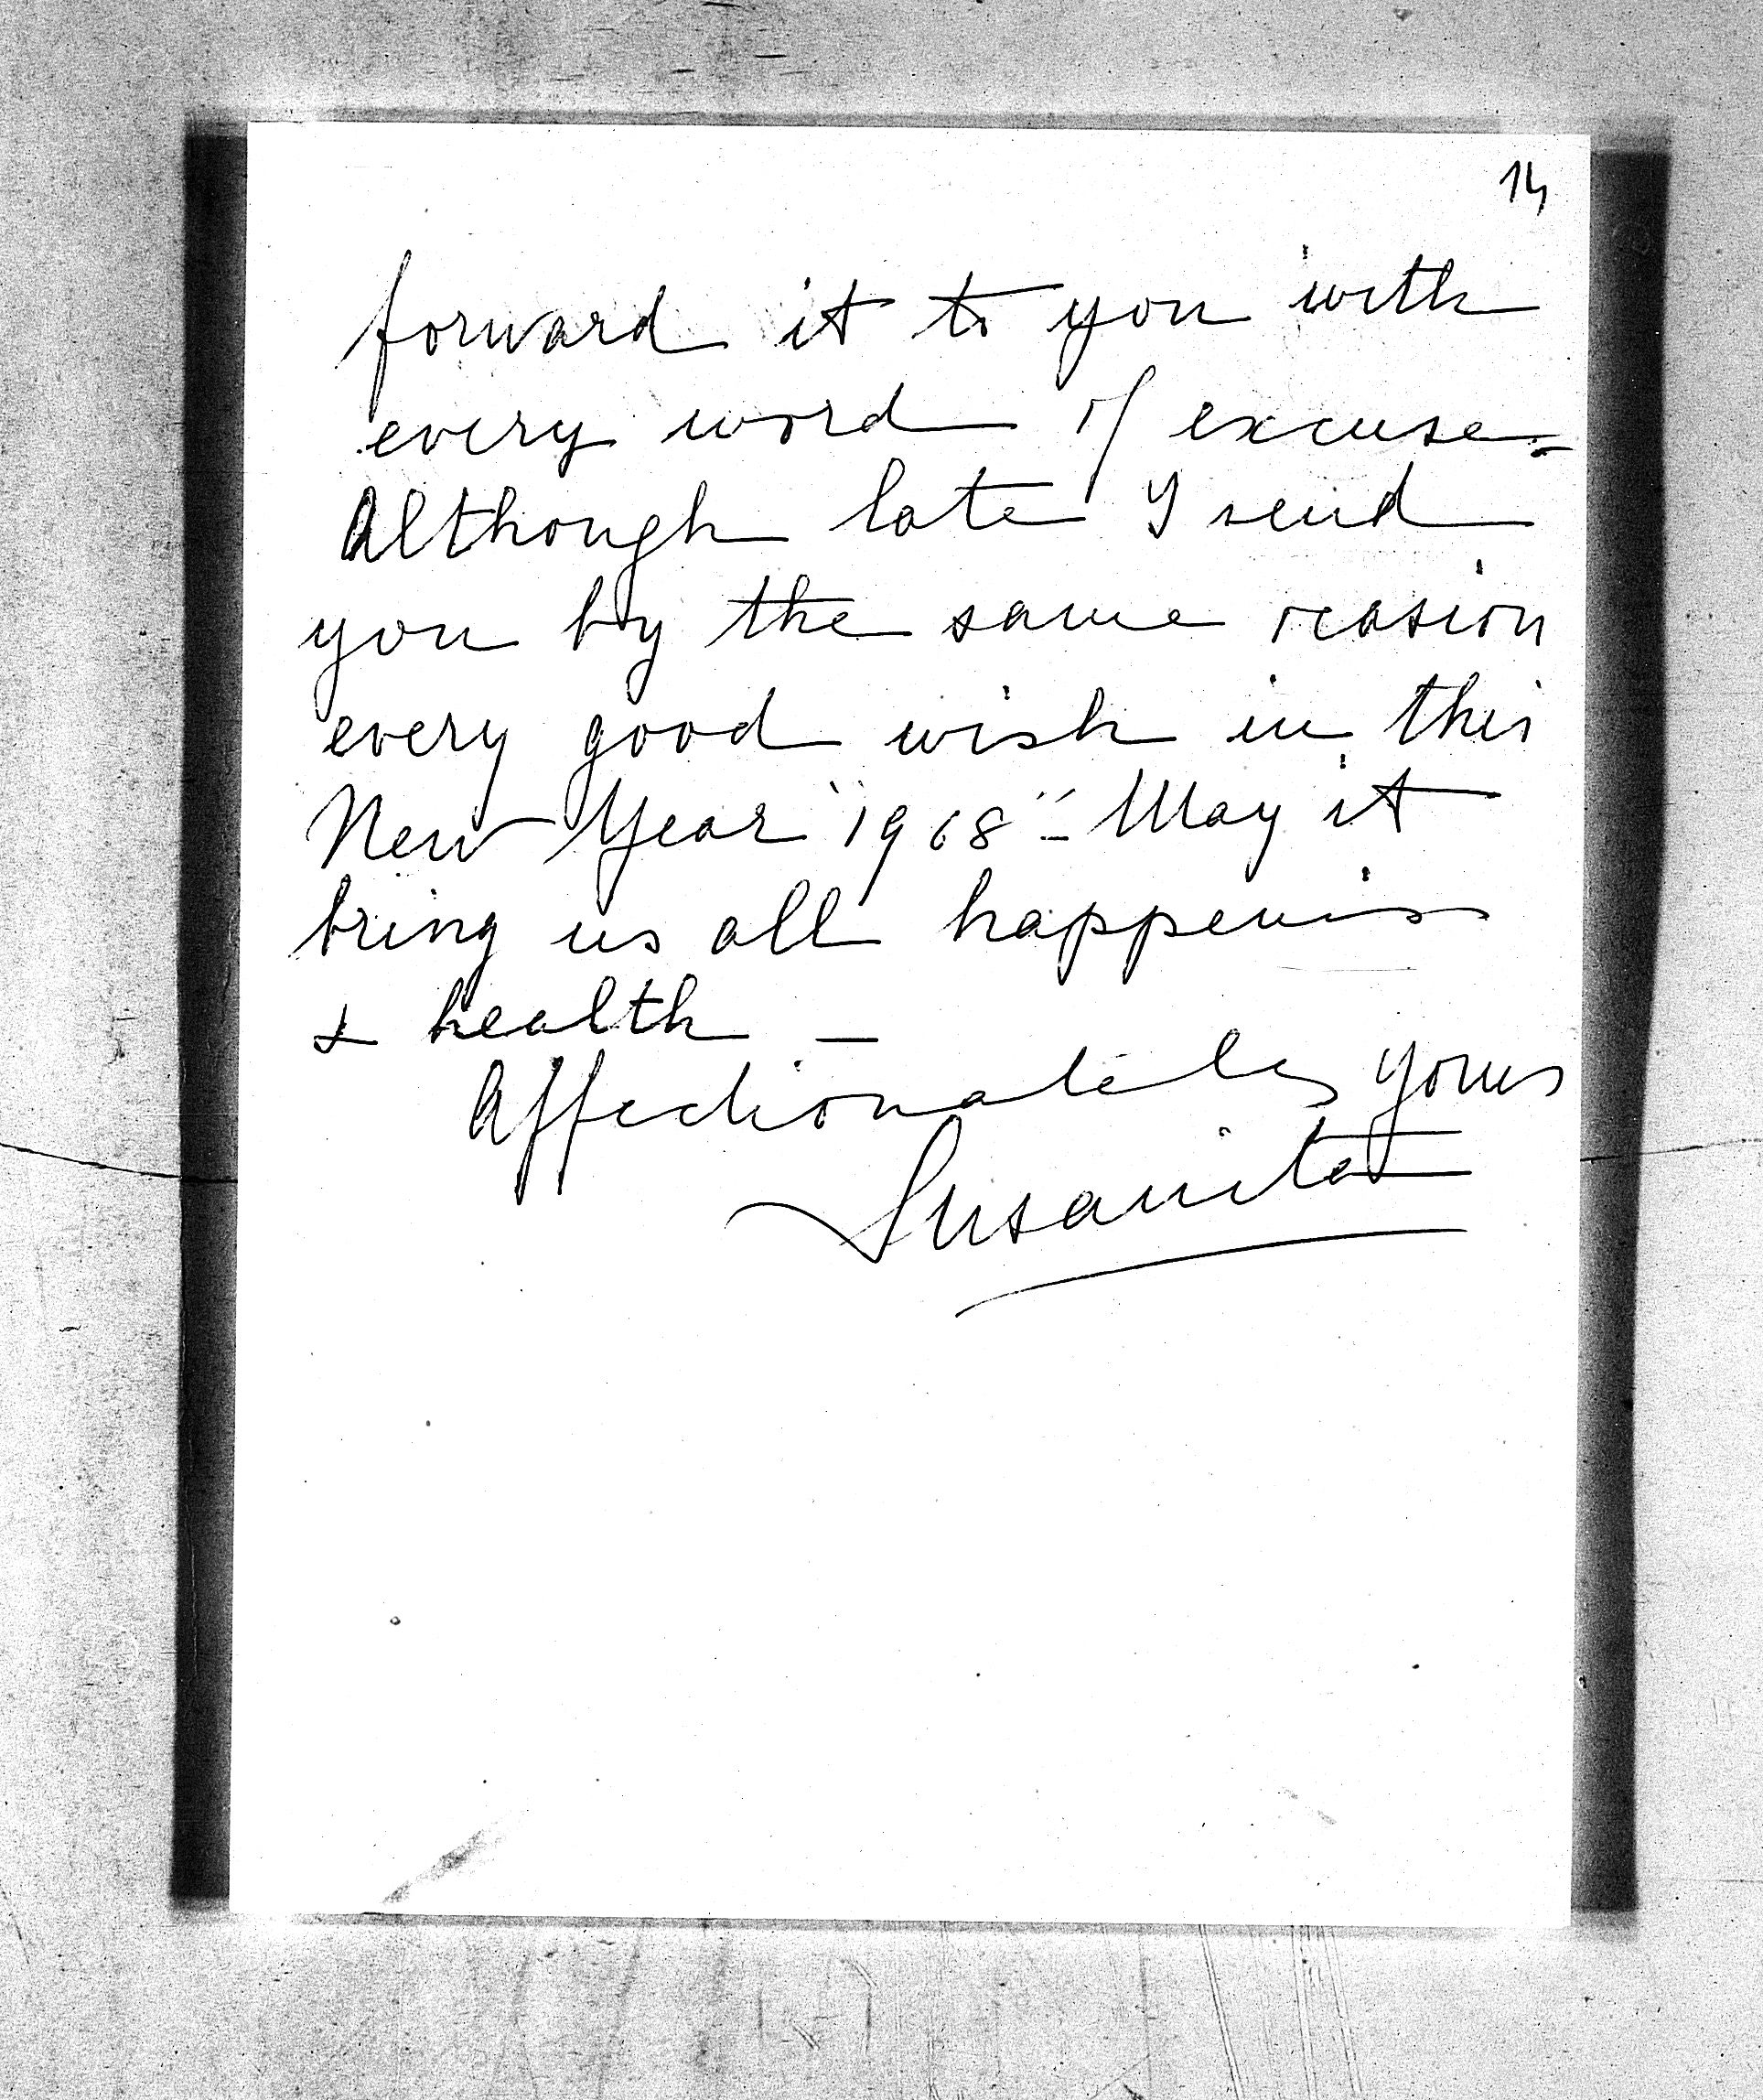 14
forward it to you with
every word of excuse -
Although late I send
you by the same ocasion
every good wish in this
New Year "1968" - May it
bring us all happenis
& health —
Affectionately yours
Susanita